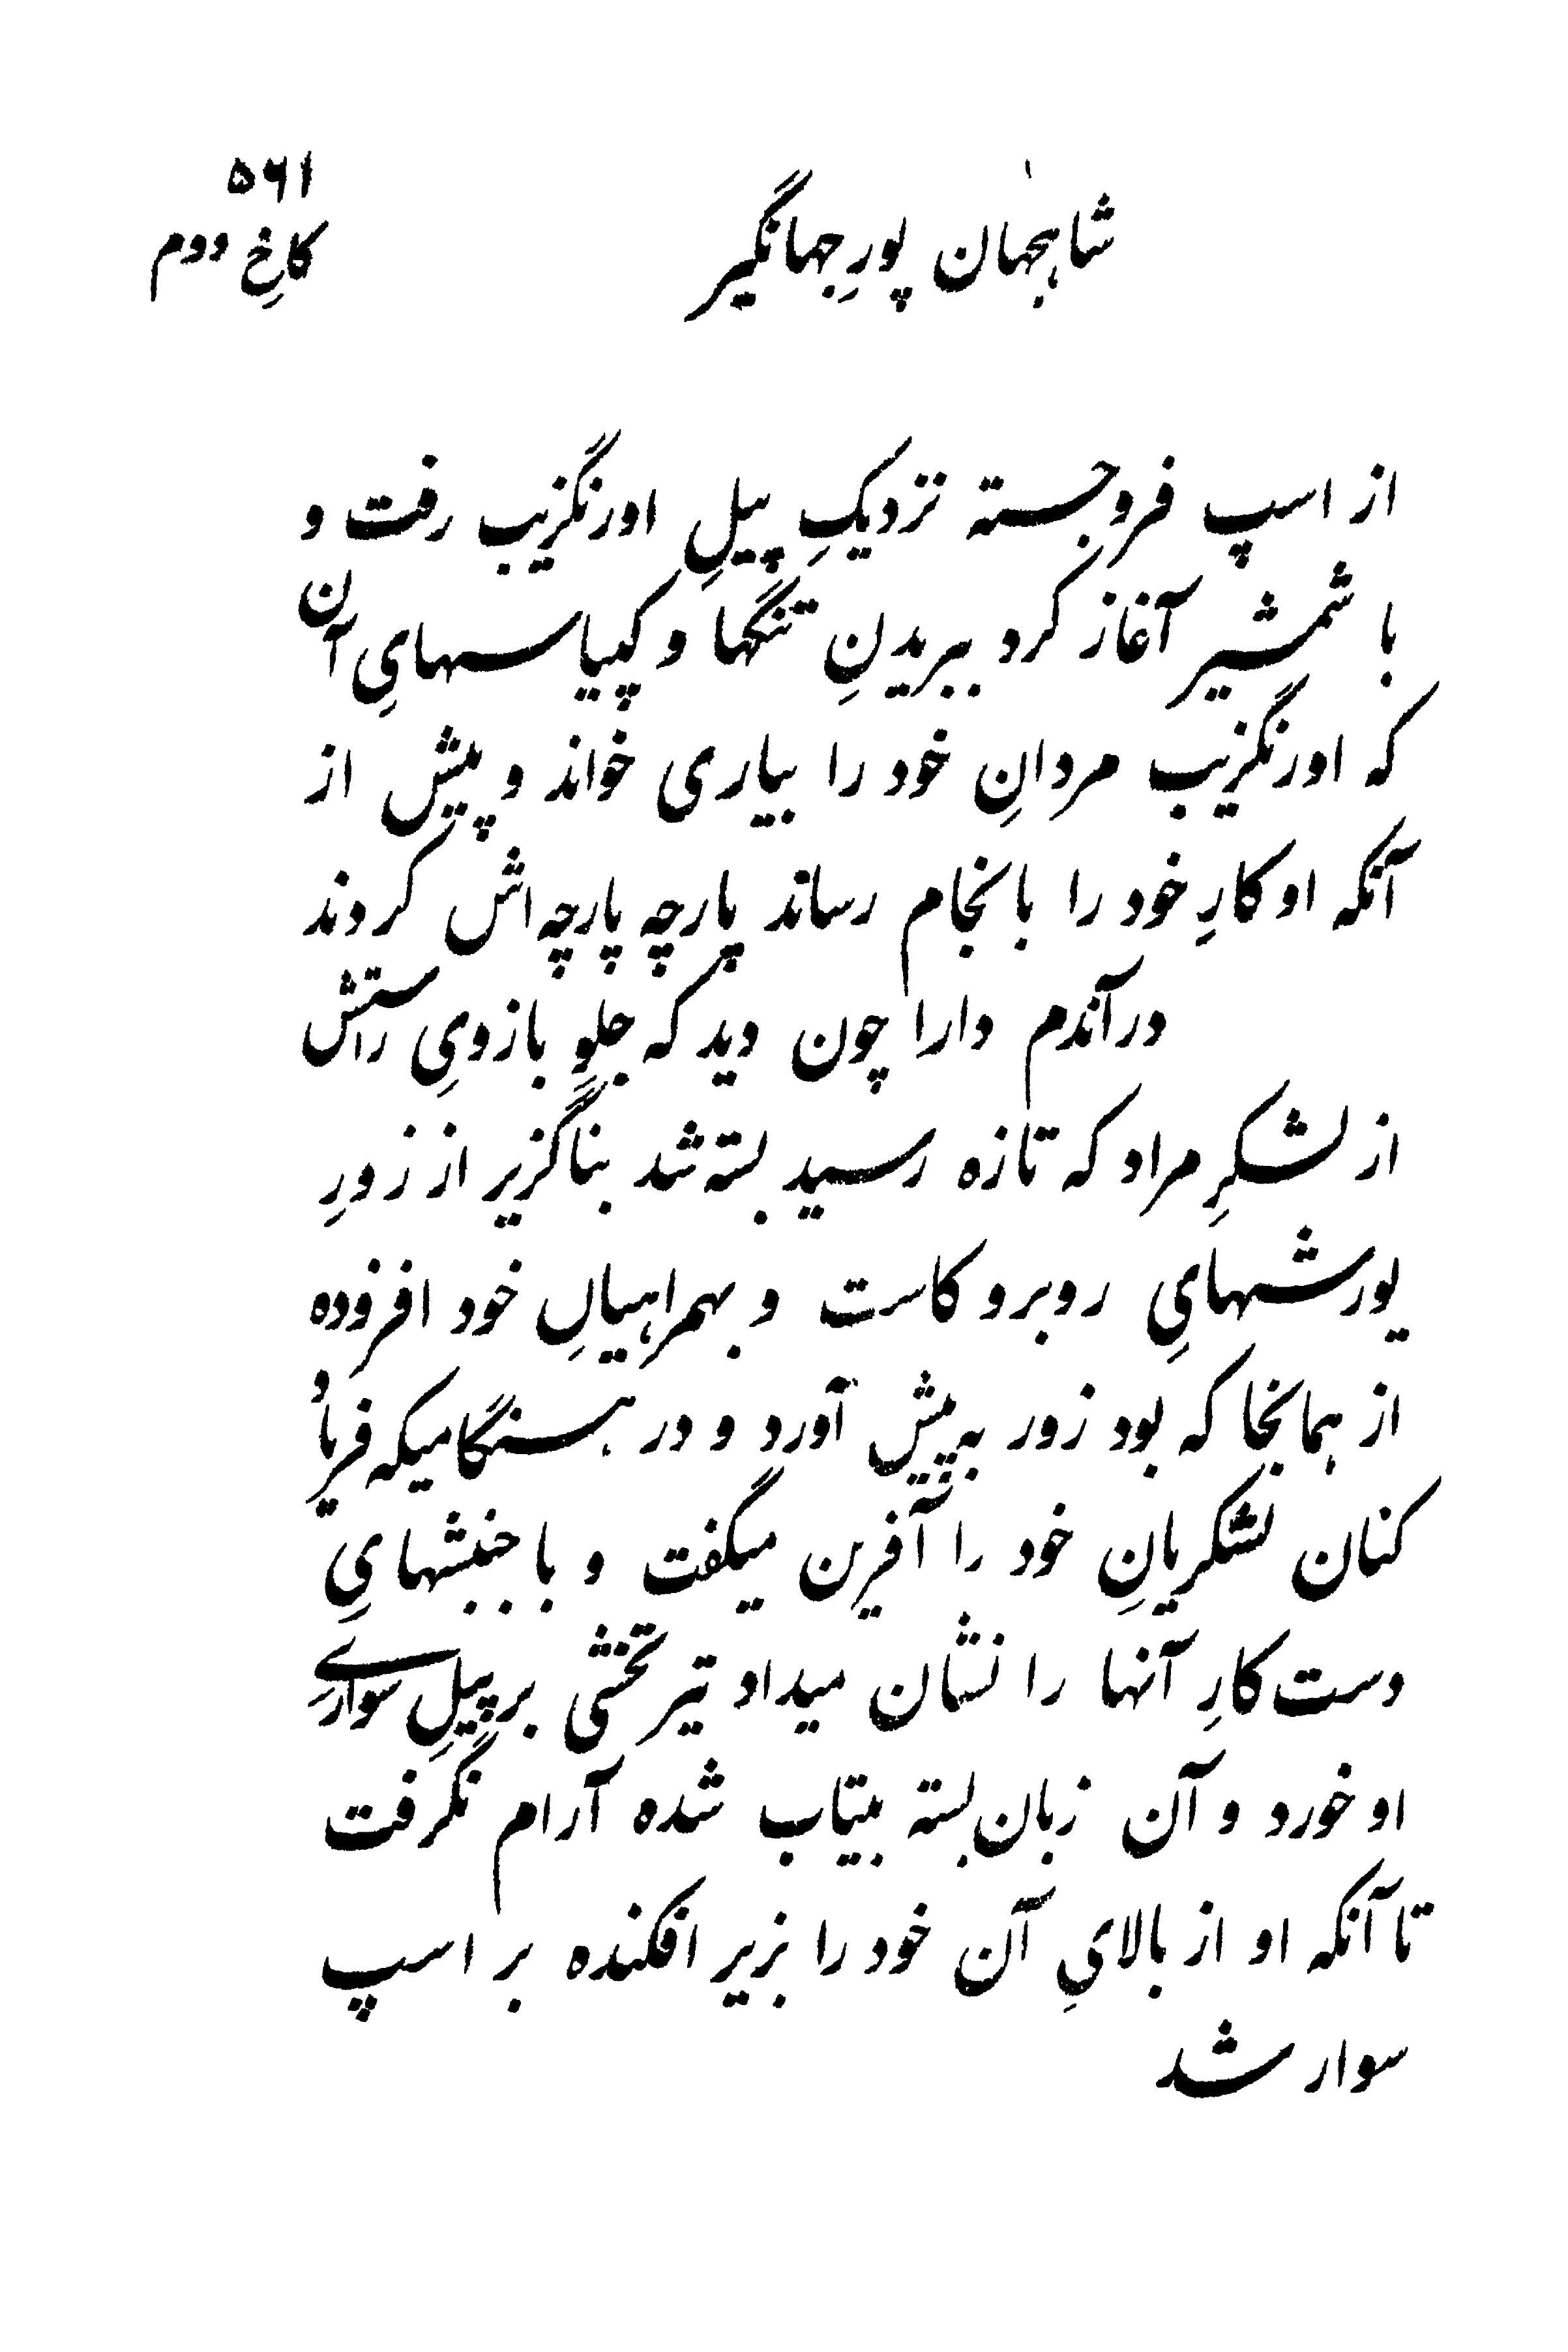 ۵۶۱
شاهجهان پورِ جهانگیر
کاخِ دوم
از اسپ فروجسته نزدیکِ پیلِ اورنگزیب رفت و
با شمشیر آغاز کرد ببریدنِ تنگها و کپیاسهایِ آن
که اورنگزیب مردانِ خود را بیاری خواند و پیش از
آنکه او کارِ خود را بانجام رساند پارچه پارچه اش کردند
درآندم دارا چون دید که جلوِ بازویِ راستش
از لشکرِ مراد که تازه رسید بسته شد بناگزیر از زورِ
یورشهایِ روبرو کاست و بهمراهیانِ خود افزوده
از همانجا که بود زور به پیش آورد و در هنگامیکه فریاد
کنان لشکریانِ خود را آفرین میگفت و با جنبشهایِ
دست کارِ آنها را نشان میداد تیر تخشی بر پیلِ سواریِ
او خورد و آن زبان بسته بیتاب شده آرام نگرفت
تا آنکه او از بالایِ آن خود را بزیر افکنده بر اسپ
سوار شد